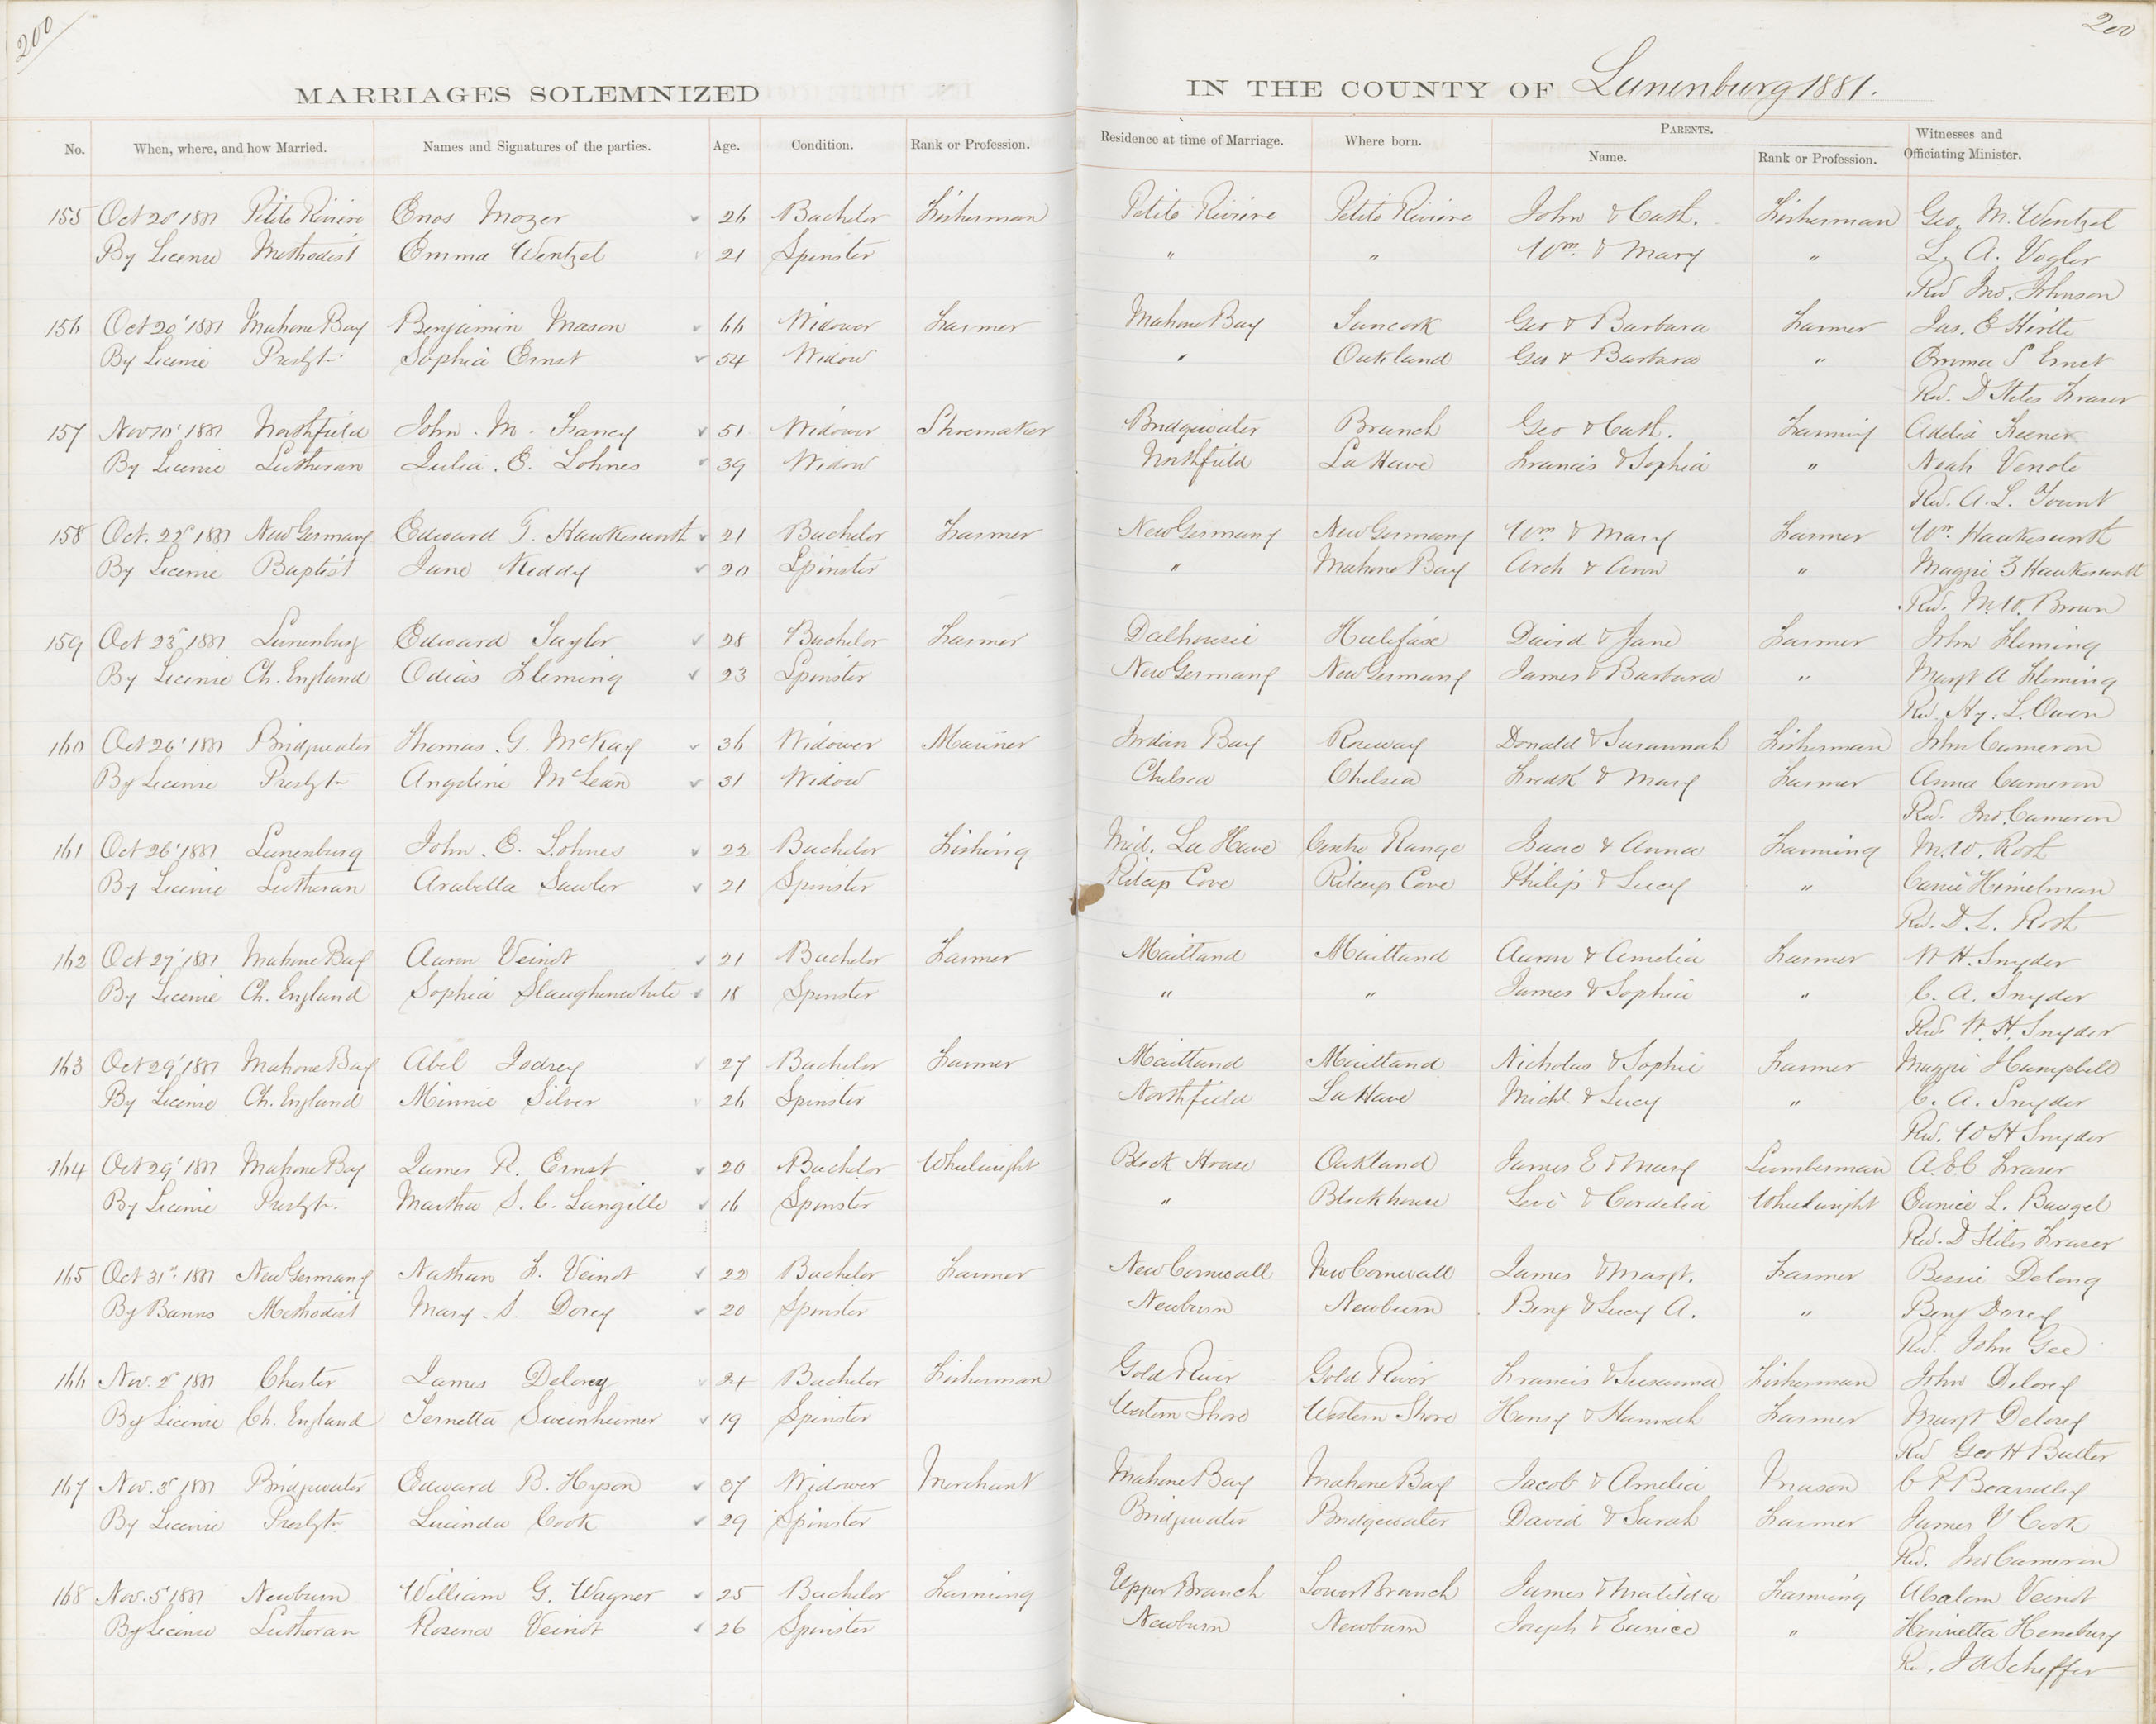 200
200
MARRIAGES SOLEMNIZED IN THE COUNTY OF Lunenburg 1881.
No. When, where, and how Married. Names and Signatures of the parties. Age. Condition. Rank or Profession. Residence at time of Marriage. Where born. PARENTS. Name. Rank or Profession. Witnesses and Officiating Minister.
155 Oct 20 1881 Petite Riviere Enos Mozer 26 Bachelor Fisherman Petite Riviere Petite Riviere John & Cath. Fisherman Geo. M. Wentzel
By License Methodist Emma Wentzel 21 Spinster " " Wm. & Mary " L. A. Vogler
Rev Jno. Johnson
156 Oct 20' 1881 Mahone Bay Benjamin Mason 66 Widower Farmer Mahone Bay Geo & Barbara Farmer Jas. E Hirtle
By License Presbytn. Sophia Ernst 54 Widow " Oakland Geo & Barbara " Emma S Ernst
Rev. D Stiles Fraser
157 Nov 10' 1881 Northfield John. M. Fancy 51 Widower Shoemaker Bridgewater Branch Geo & Cath. Farming Adelia Keener
By License Lutheran Julia. E. Lohnes 39 Widow Northfield La Have Francis & Sophia " Noah Venote
Rev. A. L. Yount
158 Oct. 22d 1881 New Germany Edward T. Hawkesworth 21 Bachelor Farmer New Germany New Germany Wm & Mary Farmer Wm. Hawkesworth
By License Baptist Jane Keddy 20 Spinster " Mahone Bay Arch & Ann " Maggie Hawkesworth
Rev. M. W. Brown
159 Oct 23d 1881 Lunenburg Edward Taylor 28 Bachelor Farmer Dalhousie Halifax David & Jane Farmer John Fleming
By License Ch. England Odias Fleming 23 Spinster New Germany New Germany James & Barbara " Margt A Fleming
Rev. Hy. L. Owen
160 Oct 26' 1881 Bridgewater Thomas. G. McKay 36 Widower Mariner Jordan Bay Roseway Donald & Susannah Fisherman John Cameron
By License Presbytn Angeline McLean 31 Widow Chelsea Chelsea Fredk & Mary Farmer Anna Cameron
Rev. Jno. Cameron
161 Oct 26' 1881 Lunenburg John. E. Lohnes 22 Bachelor Fishing Mid. La Have Centre Range Isaac & Anna Farming M. W. Rost
By License Lutheran Arabella Sawler 21 Spinster Ritceys Cove Ritceys Cove Philip & Lucy " Carrie Himelman
Rev. D. L. Rost
162 Oct 27' 1881 Mahone Bay Aaron Veinot 21 Bachelor Farmer Maitland Maitland Aaron & Amelia Farmer W H. Snyder
By License Ch. England Sophia Slaughenwhite 18 Spinster " " James & Sophia " C. A. Snyder
Rev W. H. Snyder
163 Oct 29' 1881 Mahone Bay Abel Jodrey 27 Bachelor Farmer Maitland Maitland Nicholas & Sophie Farmer Maggie Hampbell
By License Ch. England Minnie Silver 26 Spinster Northfield La Have Michl & Lucy " C. A. Snyder
Rev. W H Snyder
164 Oct 29' 1881 Mahone Bay James R. Ernst 20 Bachelor Wheelwright Block House Oakland James E & Mary Lumberman A. E. C Fraser
By License Presbytn. Martha S. C. Langille 16 Spinster " Blockhouse Levi & Cordelia Wheelwright Eunice L. Baugel
Rev. D Stiles Fraser
165 Oct 31st. 1881 New Germany Nathan F. Veinot 22 Bachelor Farmer New Cornwall New Cornwall James & Margt. Farmer Bessie Delong
By Banns Methodist Mary. S. Dorey 20 Spinster Newburn Newburn Benj & Lucy A. " Benj Dorey
Rev. John Gee
166 Nov. 2d 1881 Chester James Delorey 24 Bachelor Fisherman Gold River Gold River Francis & Susanna Fisherman John Delorey
By License Ch. England Ternetta Sweinheimer 19 Spinster Western Shore Western Shore Henry & Hannah Farmer Margt Delorey
Rev Geo H Butler
167 Nov. 3d 1881 Bridgewater Edward B. Hyson 37 Widower Merchant Mahone Bay Mahone Bay Jacob & Amelia Mason C P Beardsley
By License Presbytn Lucinda Cook 29 Spinster Bridgewater Bridgewater David & Sarah Farmer James V Cook
Rev. Jno Cameron
168 Nov. 5' 1881 Newburn William G. Wagner 25 Bachelor Farming Upper Branch Lower Branch James & Matilda Farming Absalom Veinot
By License Lutheran Rosena Veinot 26 Spinster Newburn Newburn Joseph & Eunice " Henrietta Heneburg
Rev. J A Scheffer